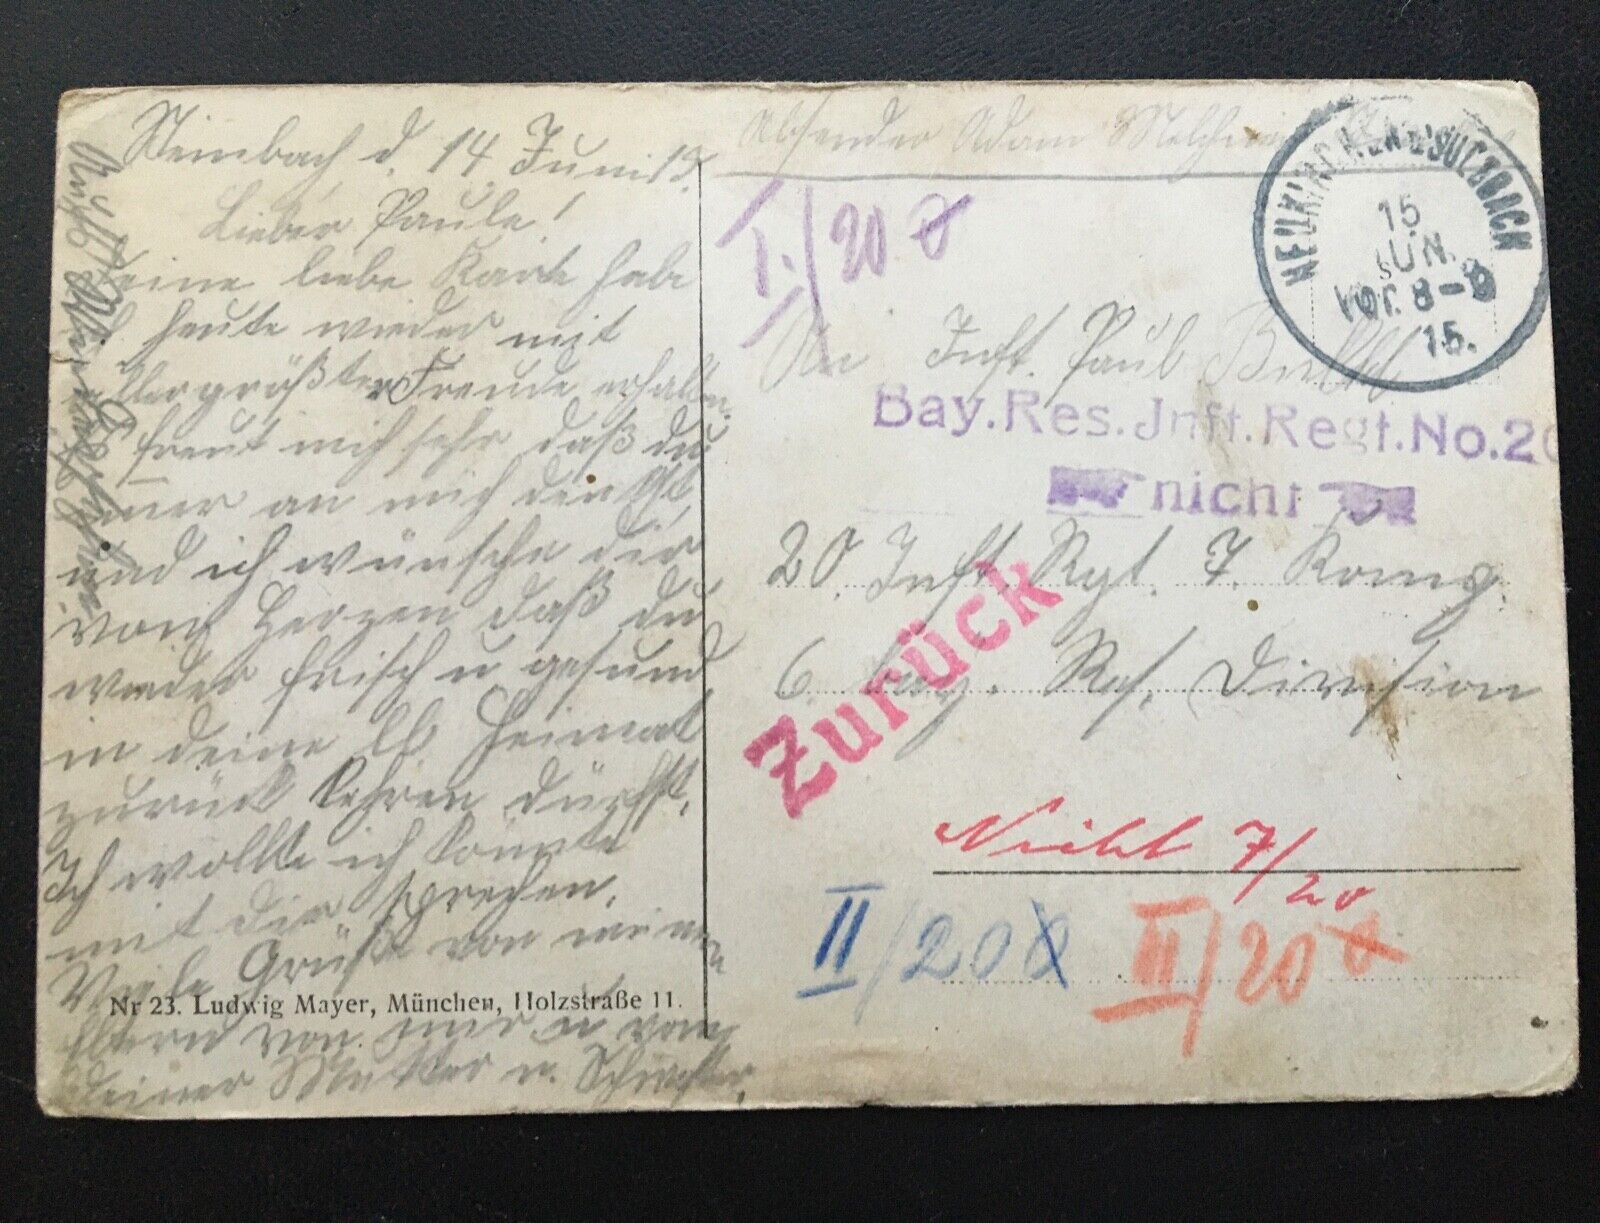 Steinbach d. 14 Juni 15.
Lieber Paule!
Deine liebe Karte habe
heute wieder mit
allergrößter Freude erhalten.
Es freut mich sehr daß du
immer an mich denkst,
und ich wünsche dir
von Herzen daß du
wieder frisch u gesund
in deine lb Heimat
zurück kehren dürfst,
Ich wollte ich könnte
mit dir sprechen,
Viele Grüße von meinen
Eltern von mir u von
deiner Mutter u. Schwester,
Nr 23. Ludwig Mayer, München, Holzstraße 11.
Absender Adam
I./20
NEUKIRCHEN B/SULZBACH
15
JUN.
Vor. 8-9
15.
An Inft. Paul
Bay.Res.Jnft.Regt.No.20
nicht
20. Inft. Rgt. 7. Komp.
6. bay. Res. Division
Zurück
Nicht 7/20
II/20
III/20